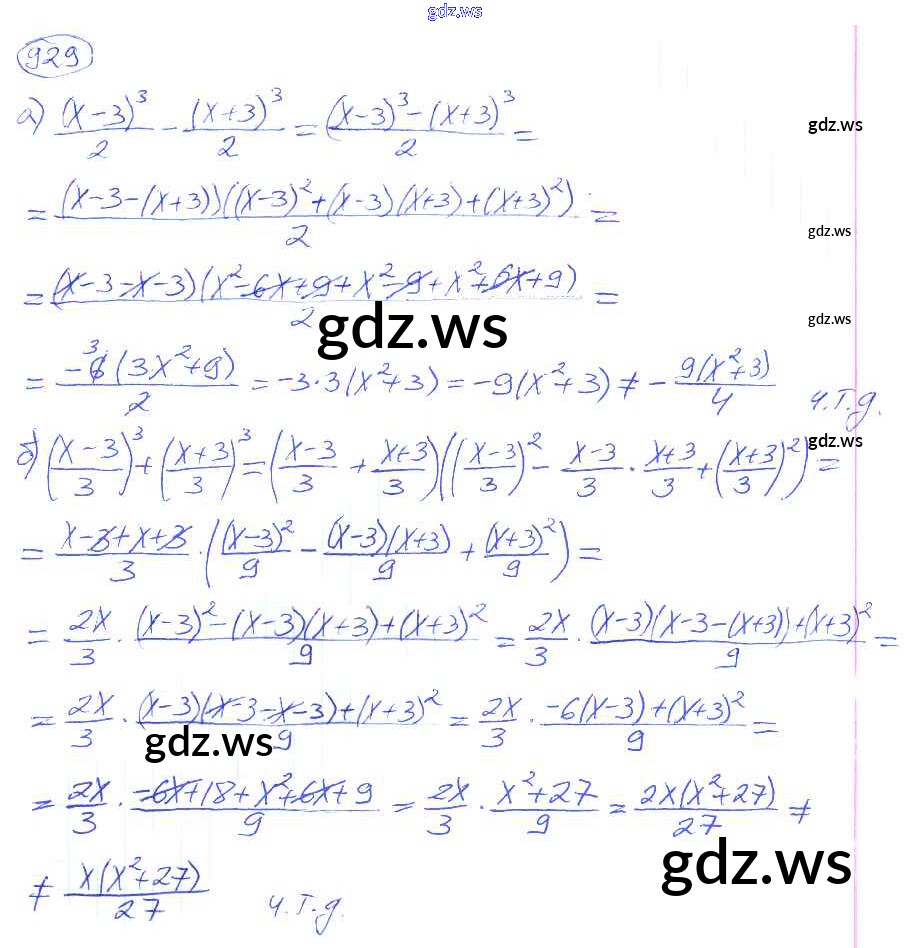 gdz.ws
929
а) (x-3)³/2 - (x+3)³/2 = ((x-3)³-(x+3)³)/2 =
gdz.ws
= (x-3-(x+3))((x-3)²+(x-3)(x+3)+(x+3)²)/2 =
gdz.ws
= (x-3-x-3)(x²-6x+9+x²-9+x²+6x+9)/2 =
gdz.ws
gdz.ws
= -6 3 (3x²+9)/2 = -3·3(x²+3) = -9(x²+3) ≠ - 9(x²+3)/4 ч.т.д.
gdz.ws
б) ((x-3)/3)³+((x+3)/3)³=((x-3)/3 + (x+3)/3)(((x-3)/3)² - (x-3)/3 · (x+3)/3 + ((x+3)/3)²) =
= (x-3+x+3)/3 · ((x-3)²/9 - (x-3)(x+3)/9 + (x+3)²/9) =
= 2x/3 · ((x-3)²-(x-3)(x+3)+(x+3)²)/9 = 2x/3 · ((x-3)(x-3-(x+3))+(x+3)²)/9 =
= 2x/3 · ((x-3)(x-3-x-3)+(x+3)²)/9 = 2x/3 · (-6(x-3)+(x+3)²)/9 =
gdz.ws
= 2x/3 · (-6x+18+x²+6x+9)/9 = 2x/3 · (x²+27)/9 = 2x(x²+27)/27 ≠
gdz.ws
≠ x(x²+27)/27 ч.т.д.